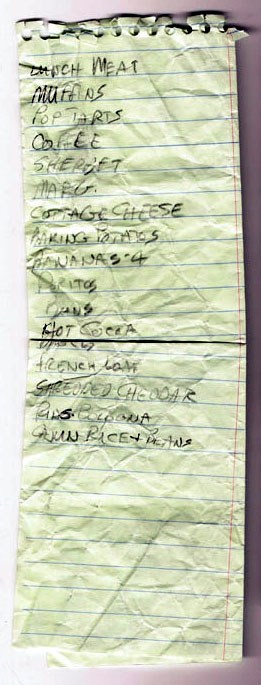 LUNCH MEAT
MUFFINS
POP TARTS
COFFEE
SHERBET
MARG.
COTTAGE CHEESE
BAKING POTATOS
BANANAS-4
DORITOS
BEANS
HOT COCOA
FRENCH LOAF
SHREDDED CHEDDAR
RING BOLOGNA
RICE + BEANS